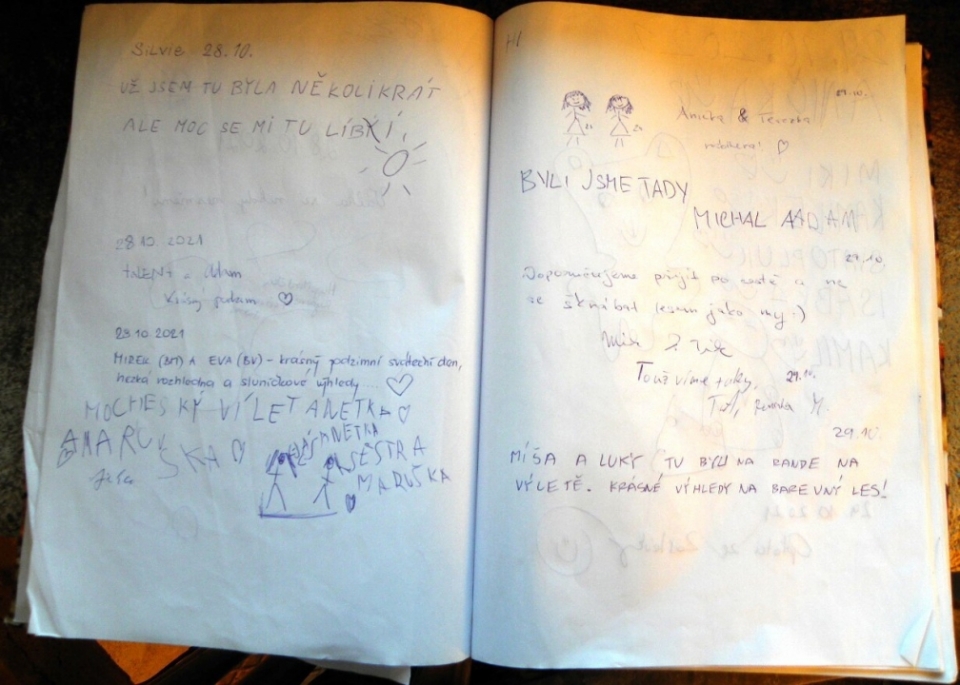 Silvie 28.10.
UŽ JSEM TU BYLA NĚKOLIKRÁT
ALE MOC SE MI TU LÍBÍ,
28.10.2021
Adam
Krásný
28.10.2021
MIREK (BM) A EVA (BV) - krásný podzimní sváteční den,
hezká rozhledna a sluníčkové výhledy ...
MOC HESKÝ VÍLET ANETKA
A MARUŠKA
ANETKA
SESTRA
MARUŠKA
HI
29.10.
Anička & Terezka
nádherné!
BYLI JSME TADY
MICHAL A ADAM
29.10.
Doporučujeme přijít po cestě a ne
se škrábat lesem jako my :)
To už víme taky. 29.10.
29.10.
MÍŠA A LUKY TU BYLI NA RANDE NA
VÝLETĚ. KRÁSNÉ VÝHLEDY NA BAREVNÝ LES!